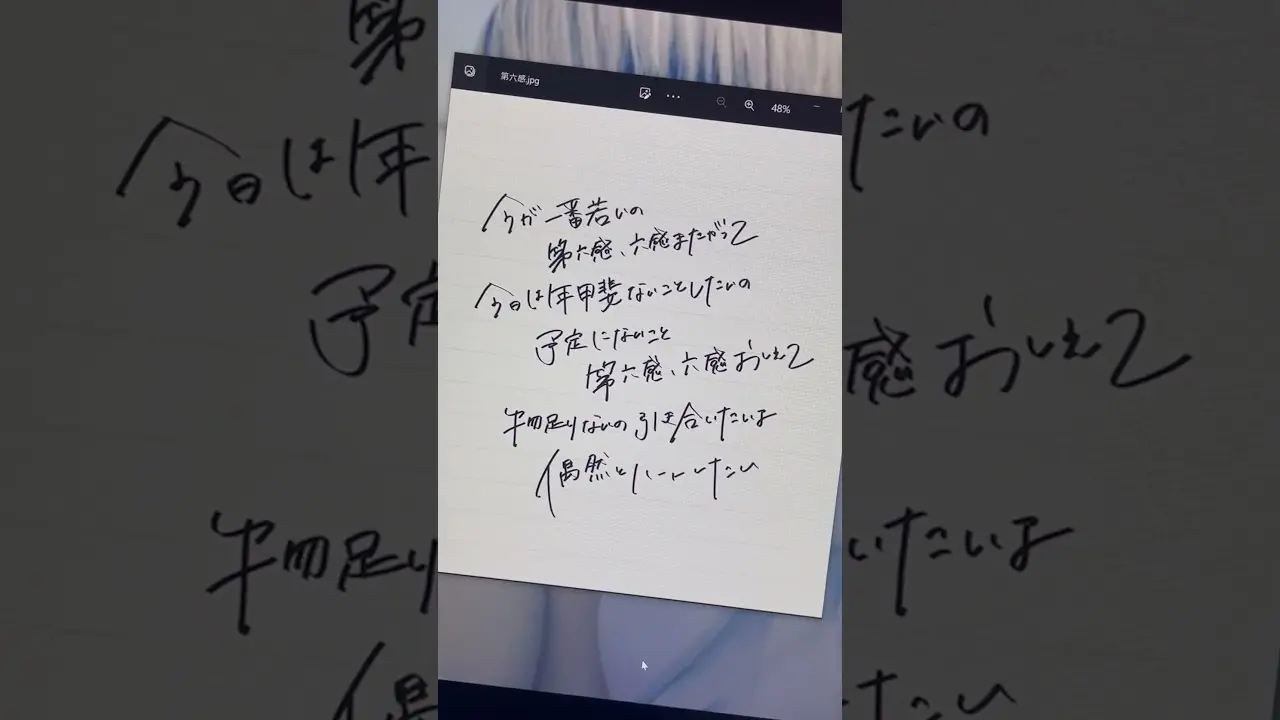 第六感.jpg
48%
今が一番若いの
第六感、六感またがって
今日は年甲斐ないことしたいの
予定にないこと
第六感、六感おしえて
物足りないの 引き合いたいよ
偶然とハートしたい